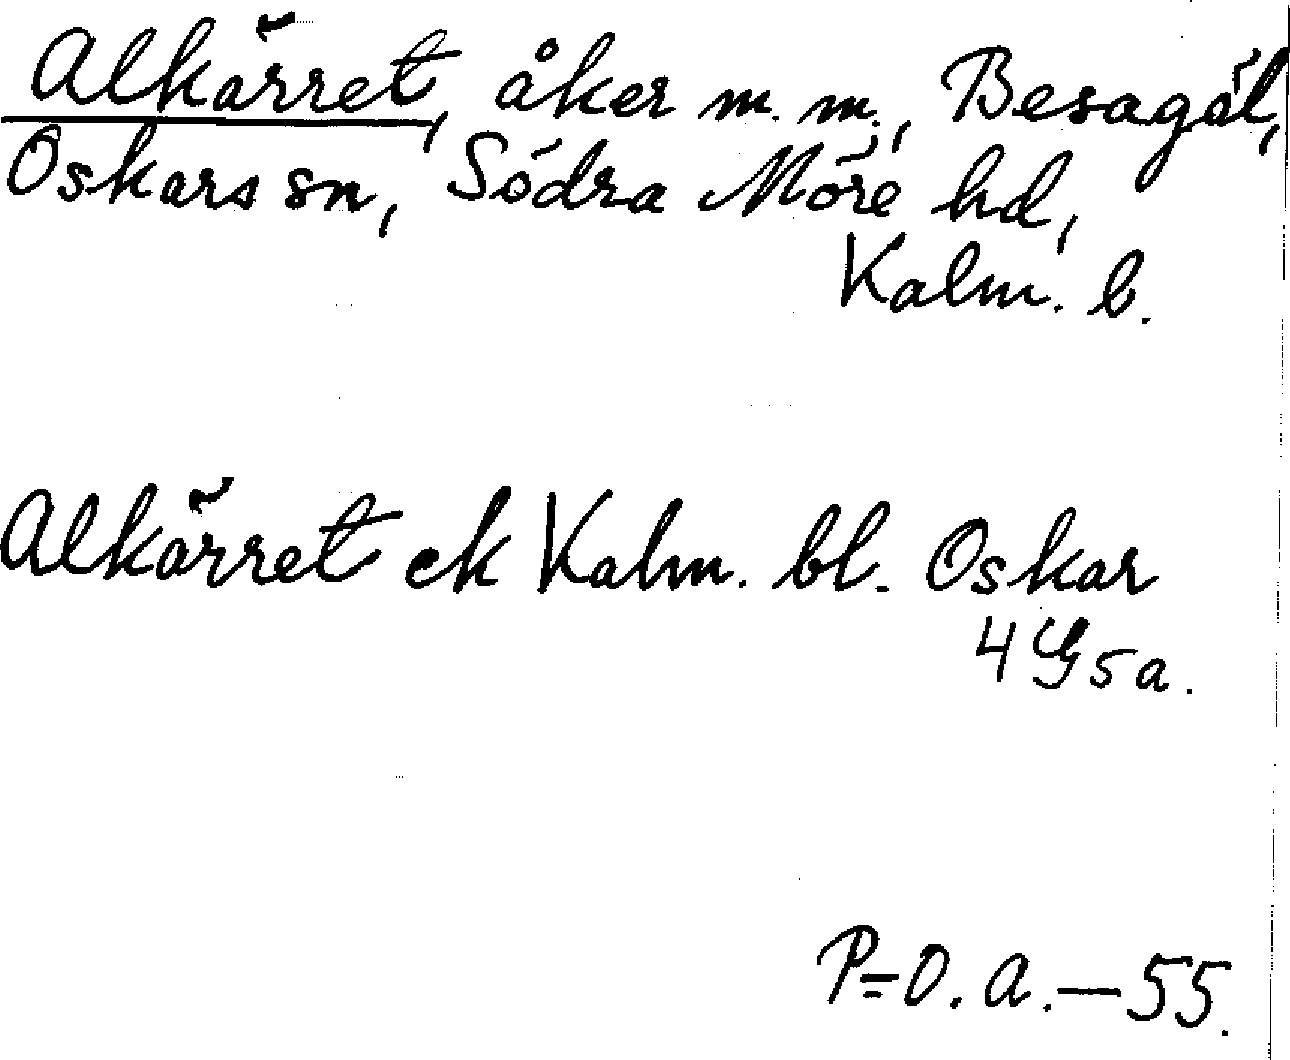 Alkärret, åker m. m., Besagöl,
Oskars sn, Södra Möre hd,
Kalm. l.
Alkärret ek Kalm. bl. Oskar
4 G 5 a.
P-O. A. - 55.